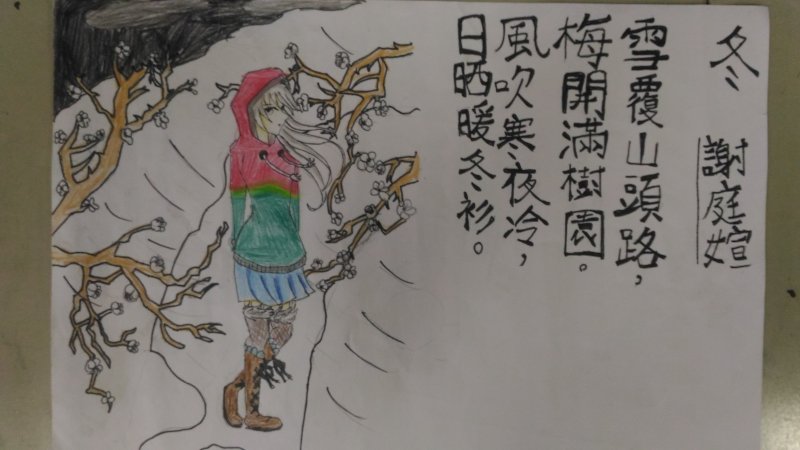 冬
謝庭媗
雪覆山頭路，
梅開滿樹園。
風吹寒夜冷，
日晒暖冬衫。